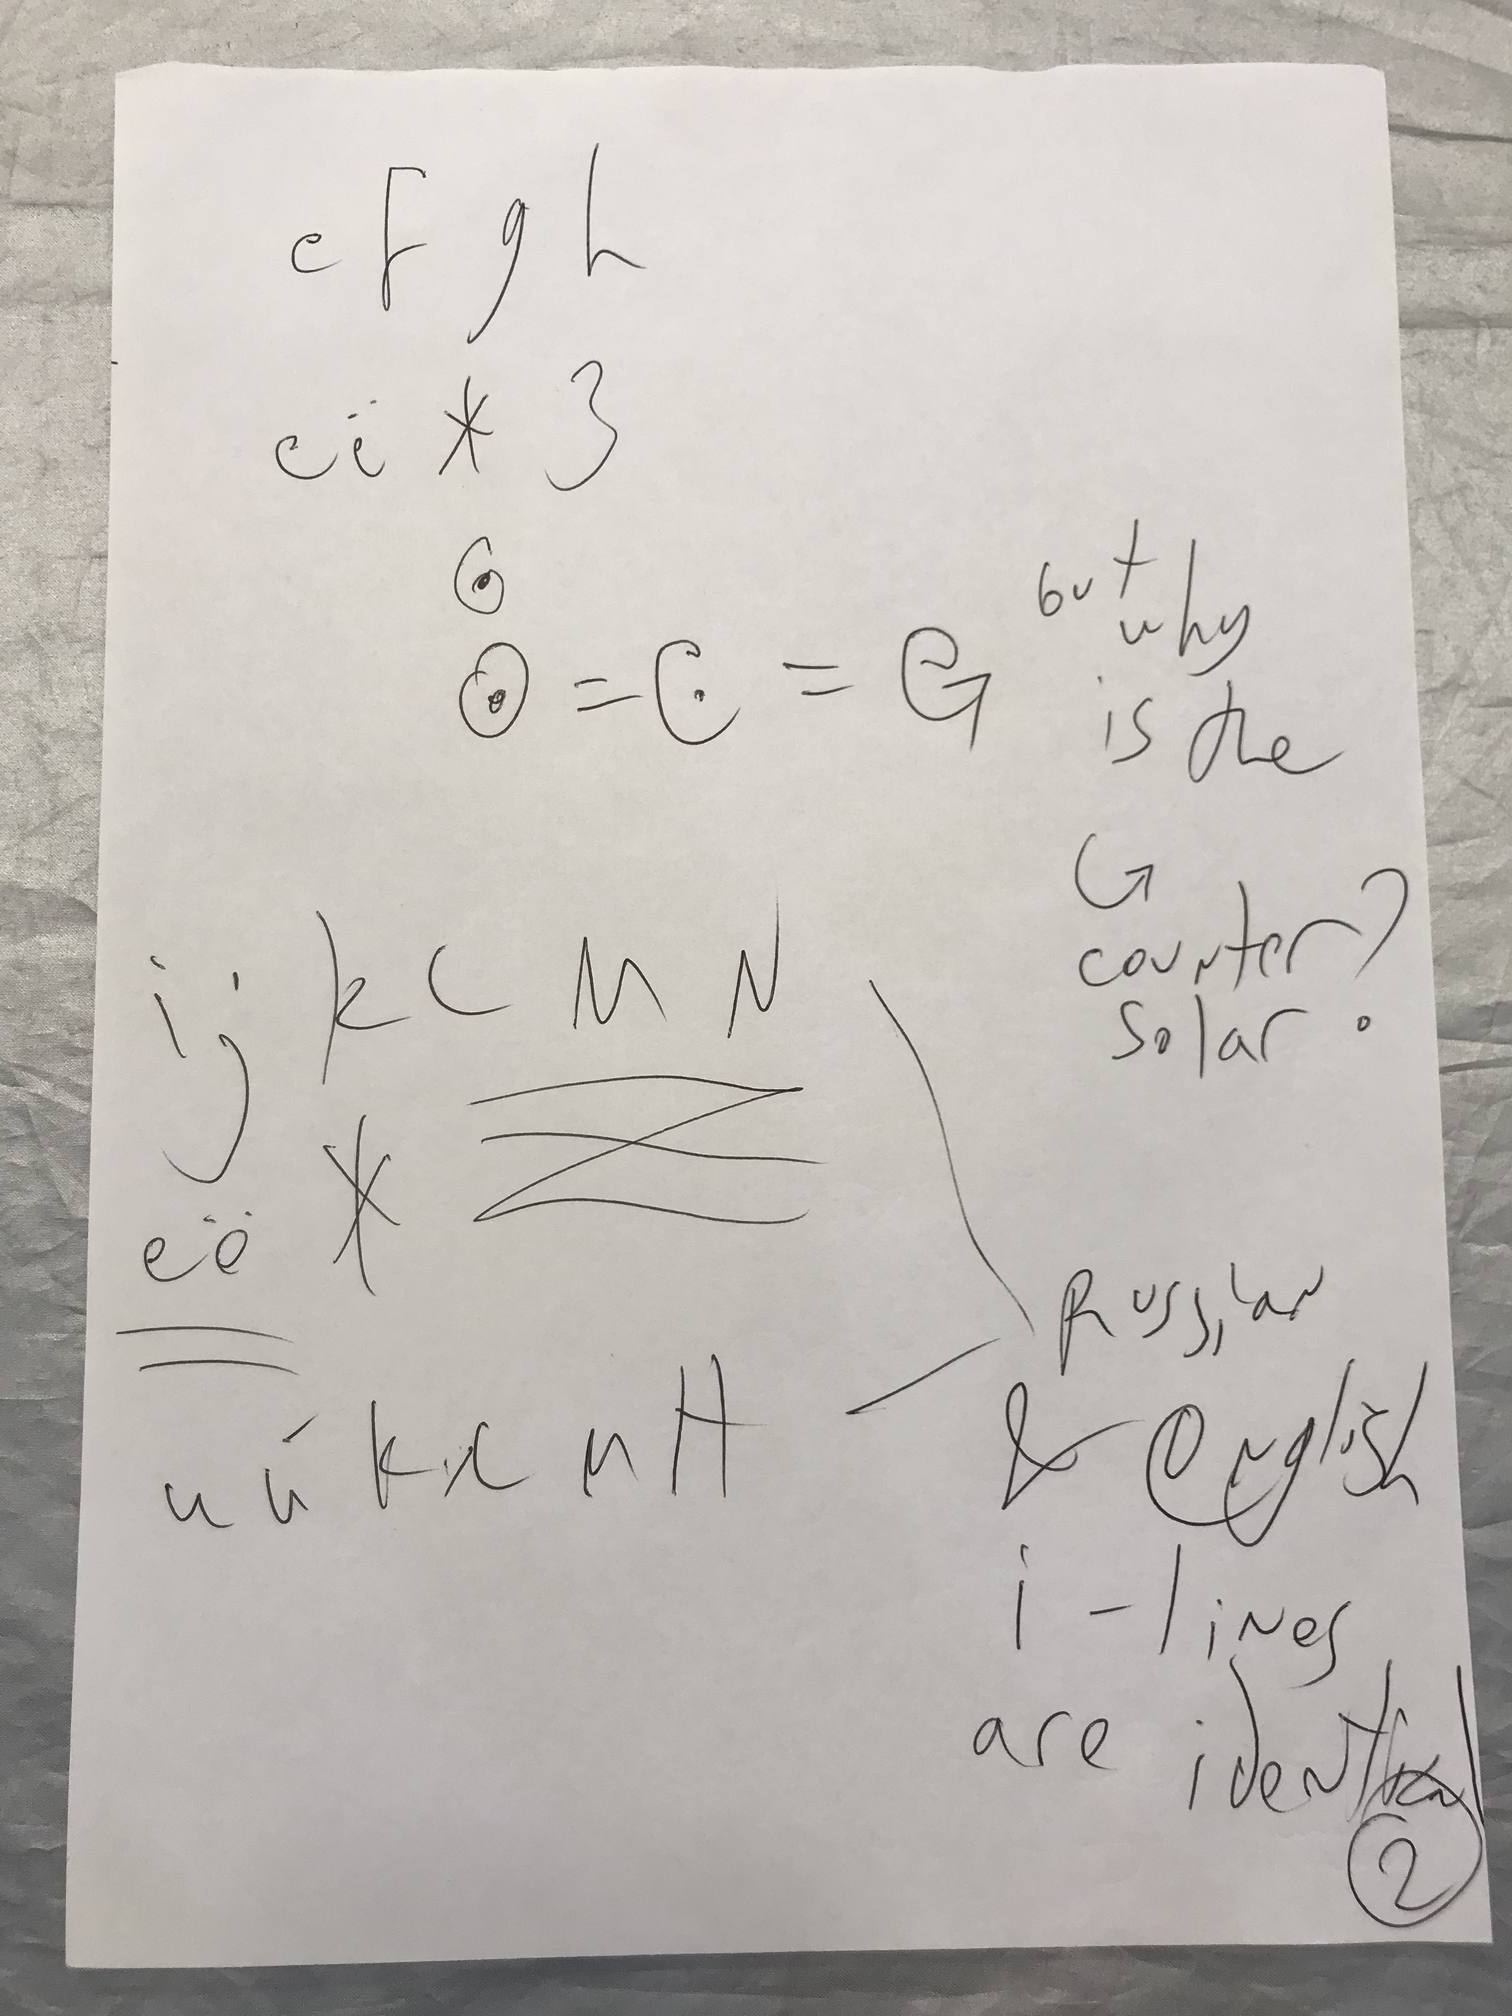 e F g h
e ë ж З
G
ʘ = C = G
but
why
is the
G
counter
solar?
i j k L M N
e ë ж
и й k л м H
Russian
& English
i - lines
are identical
2